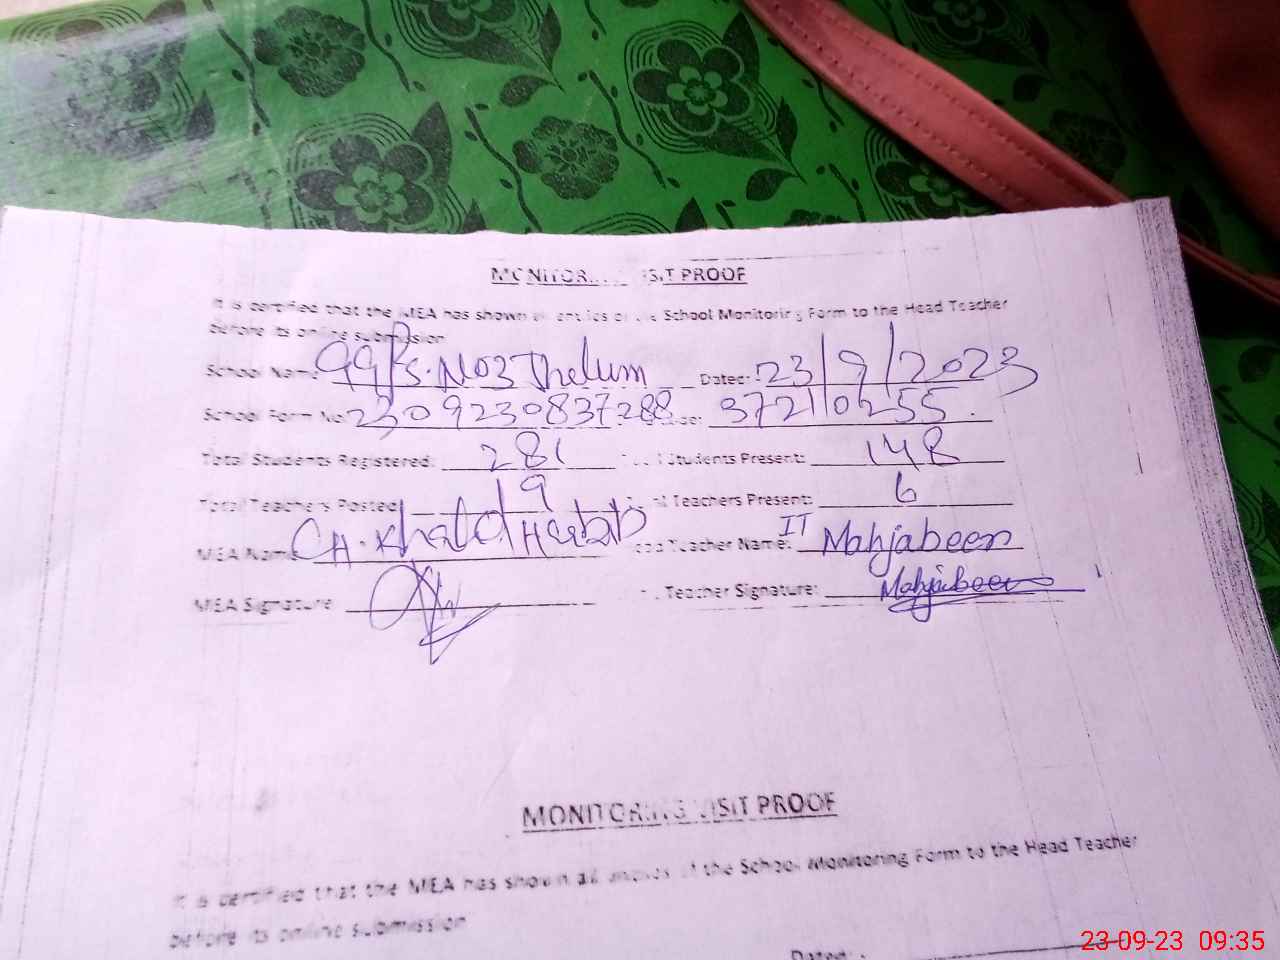 MONITORING VISIT PROOF
It is certified that the MEA has shown all entries of the School Monitoring Form to the Head Teacher
before its online submission
School Name GGPS. NO3 Jhelum Dated: 23/9/2023
School Form No 2309230837288 37210255.
Total Students Registered: 281 Students Present: 148
Total Teachers Posted 9 Teachers Present: 6
MEA Name CH. Khalid Teacher Name: II Mahjabeen
MEA Signature Teacher Signature: Mahjabeen
MONITORING VISIT PROOF
It is certified that the MEA has shown all entries of the School Monitoring Form to the Head Teacher
before its online submission
Dated:
23-09-23 09:35